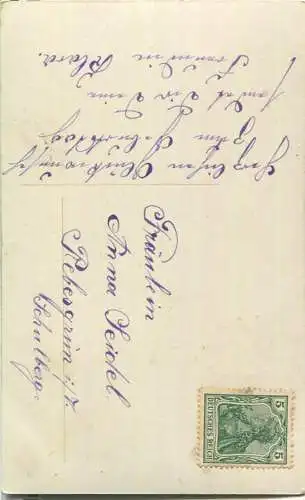 Herzlichen Glückwunsch
zum Geburtstag
sendet Dir Deine
Freundin Klara.
Fräulein
Anna Seidel
Rebesgrün i/V.
Schulberg.
5 5
DEUTSCHES REICH